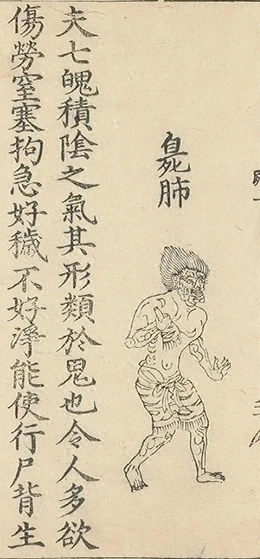 臰肺
夫七魄積陰之氣其形類於鬼也令人多欲
傷勞窒塞拘急好穢不好淨能使行尸背生